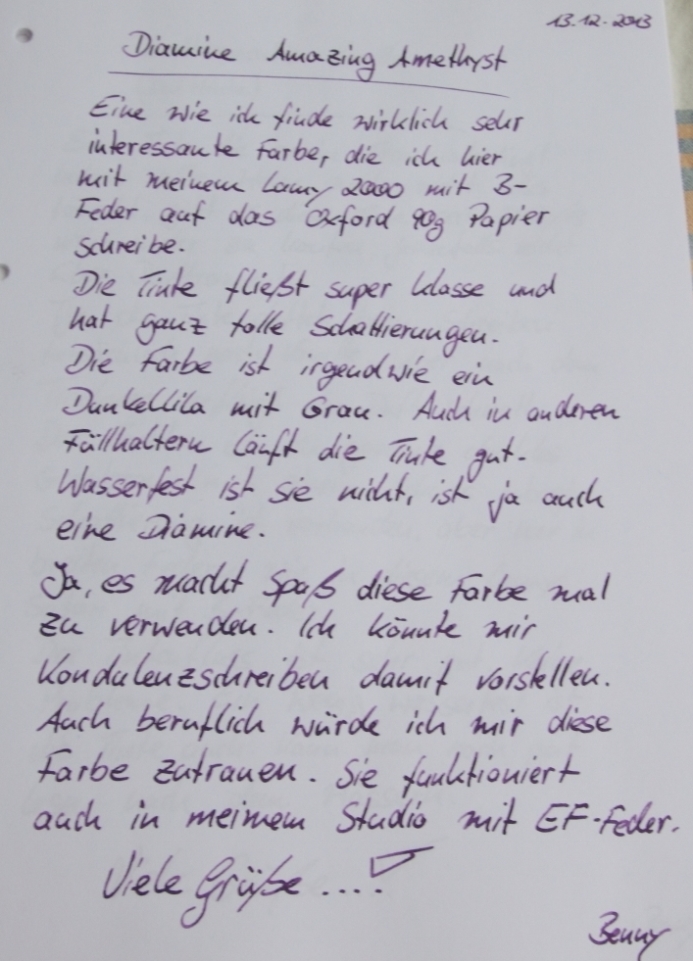 13.12.2013
Diamine Amazing Amethyst
Eine wie ich finde wirklich sehr
interessante Farbe, die ich hier
mit meinem Lamy 2000 mit B-
Feder auf das Oxford 90g Papier
schreibe.
Die Tinte fließt super klasse und
hat ganz tolle Schattierungen.
Die Farbe ist irgendwie ein
Dunkellila mit Grau. Auch in anderen
Füllhaltern läuft die Tinte gut.
Wasserfest ist sie nicht, ist ja auch
eine Diamine.
Ja, es macht Spaß diese Farbe mal
zu verwenden. Ich könnte mir
Kondulenzschreiben damit vorstellen.
Auch beruflich würde ich mir diese
Farbe zutrauen. Sie funktioniert
auch in meinem Studio mit EF-Feder.
Viele Grüße ....!
Benny